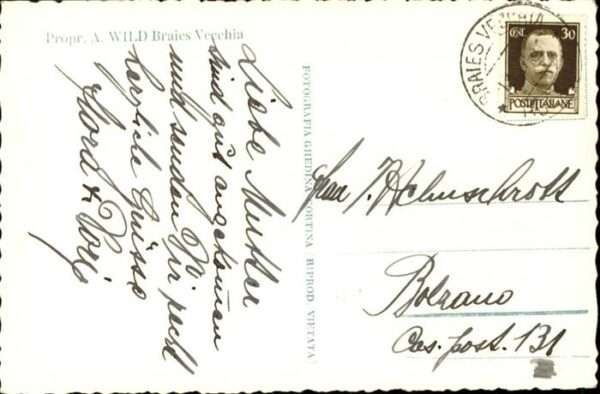 Propr. A. WILD Braies Vecchia
Liebe Mutter
sind gut angekommen
und senden Dir recht
herzliche Grüsse
FOTOGRAFIA GHEDINA CORTINA RIPROD. VIETATA
BRAIES VECCHIA
CENT. 30
POSTE ITALIANE
Frau J. Helmschrott
Bolzano
Cas. post. 131